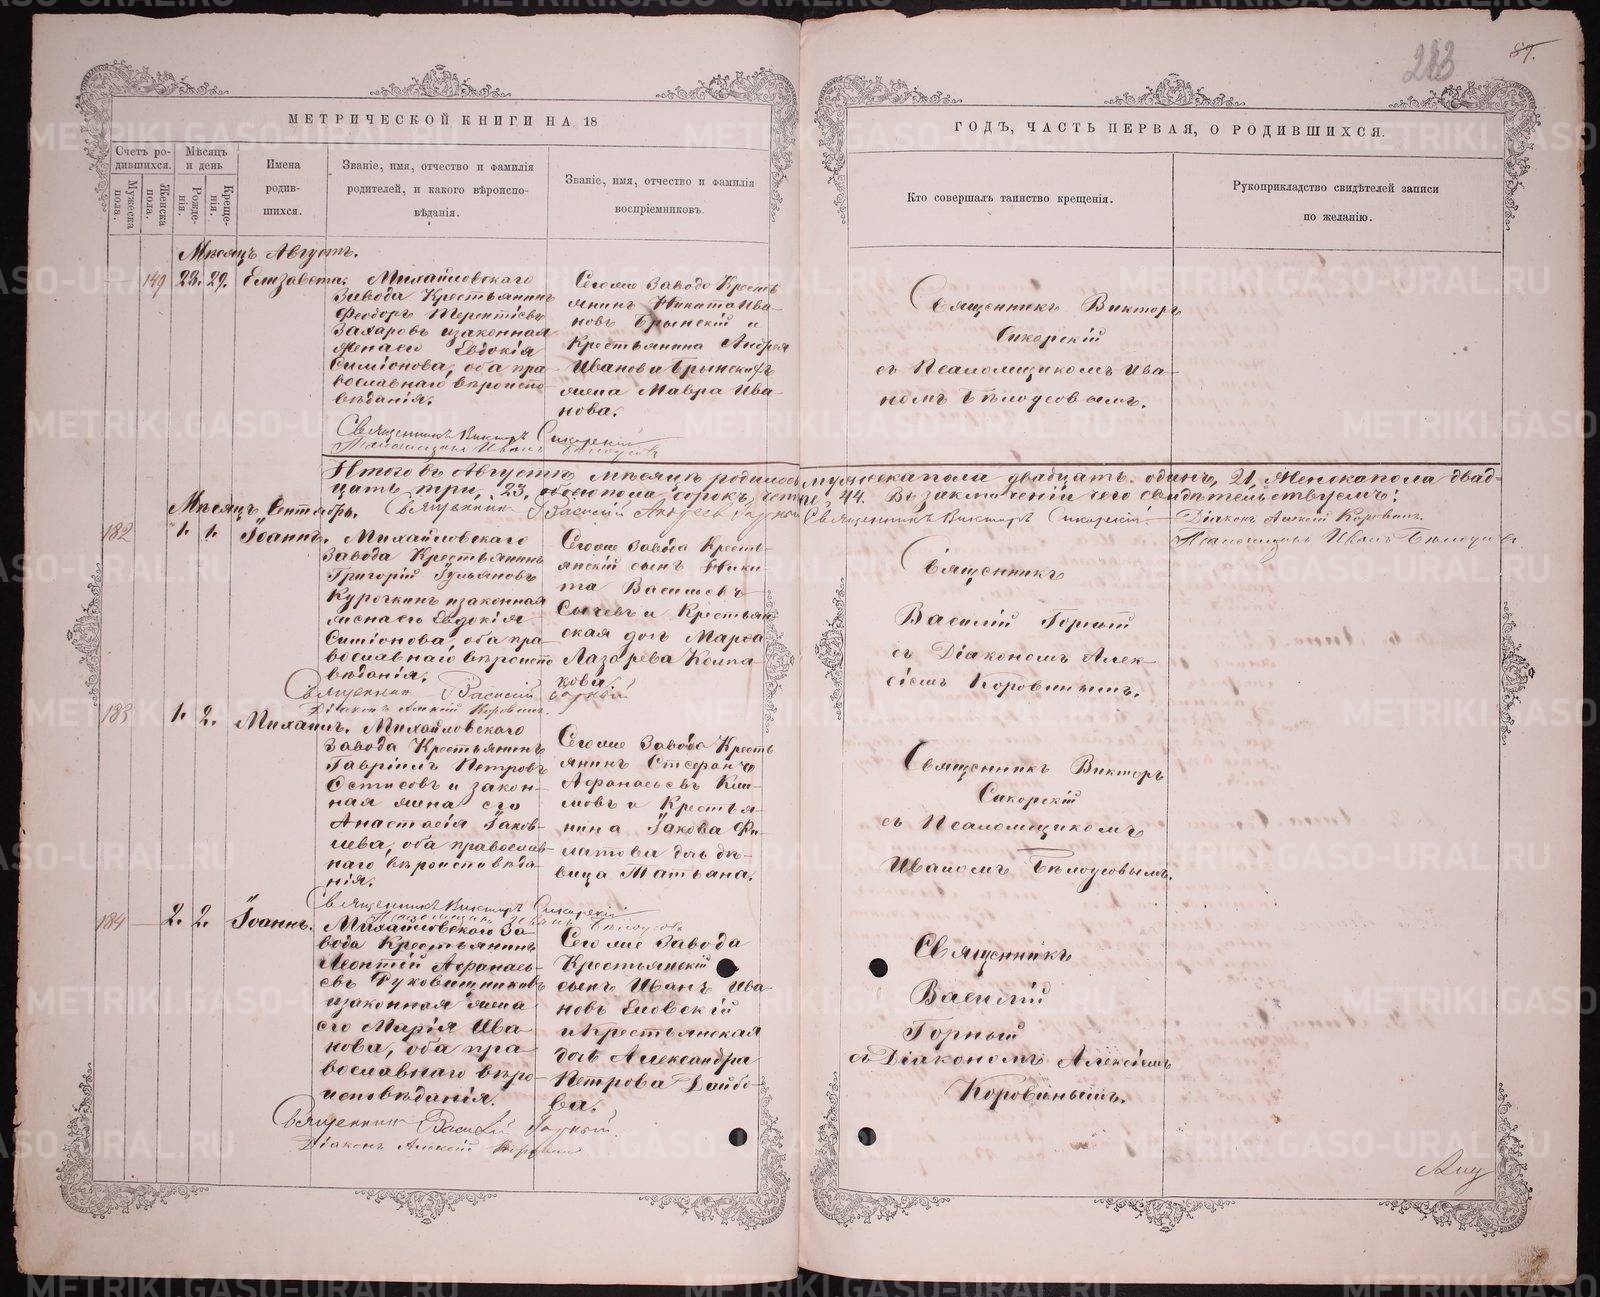 213
87.
МЕТРИЧЕСКОЙ КНИГИ НА 18
ГОДЪ, ЧАСТЬ ПЕРВАЯ, О РОДИВШИХСЯ.
Счетъ родившихся.
Мужеска пола.
Женска пола.
Мѣсяцъ и день
Рожденія.
Крещенія.
Имена родившихся.
Званіе, имя, отчество и фамилія
родителей, и какого вѣроиспо-
вѣданія.
Званіе, имя, отчество и фамилія
воспріемниковъ.
Кто совершалъ таинство крещенія.
Рукоприкладство свидѣтелей записи
по желанію.
Мѣсяцъ Августъ.
149 23. 29. Елизавета.
Михайловскаго
Завода Крестьянинъ
Феодоръ Терентіевъ
Захаровъ и законная
жена его Евдокія
Симіонова, оба пра-
вославнаго вѣроиспо-
вѣданія.
Сегоже Завода Кресть
янинъ Никита Ива-
новъ Брынскій и
Крестьянина Андрея
Иванова Брынскихъ
жена Мавра Ива-
нова.
Священникъ Викторъ
Сикорскій
съ Псаломщикомъ Ива-
номъ Бѣлоусовымъ.
Священникъ Викторъ Сикорскій
Псаломщикъ Иванъ Бѣлоусовъ
Итого въ Августѣ мѣсяцѣ родилось мужеска пола двадцать одинъ, 21, Женска пола двад-
цать три, 23, обоего пола сорокъ четыре, 44. Въ заключеніи сего свидѣтельствуемъ:
Священникъ Василій Горный Священникъ Викторъ Сикорскій
Діаконъ Алексій Коровинъ.
Псаломщикъ Иванъ Бѣлоусовъ
Мѣсяцъ Сентябрь.
182 1. 1. Іоаннъ.
Михайловскаго
Завода Крестьянинъ
Григорій
Курочкинъ и законная
жена его Евдокія
Симіонова, оба пра-
вославнаго вѣроиспо
вѣданія.
Сегоже Завода Кресть-
янскій сынъ Ники-
та Васильевъ
Сычевъ и Крестьян
ская дочь Марфа
Лазарева Колпа-
кова.
Священникъ
Василій Горный
съ Діакономъ Алек-
сіемъ Коровинымъ.
Священникъ Василій Горный
Діаконъ Алексій Коровинъ.
183 1. 2. Михаилъ.
Михайловскаго
Завода Крестьянинъ
Гавріилъ Петровъ
и закон-
ная жена его
Анастасія Іаков-
лева, оба православ-
наго вѣроисповѣда-
нія.
Сегоже Завода Кресть
янинъ Стефанъ
Афанасьевъ Кли-
мовъ и Крестья-
нина Іакова Фи-
латова дочь дѣ-
вица Татьяна.
Священникъ Викторъ
Сикорскій
съ Псаломщикомъ
Иваномъ Бѣлоусовымъ.
Священникъ Викторъ Сикорскій
Псаломщикъ Иванъ Бѣлоусовъ
184 2. 2. Іоаннъ.
Михайловскаго За-
вода Крестьянинъ
Леонтій Афанась-
евъ Рукавишниковъ
и законная жена
его Марія Ива-
нова, оба пра-
вославнаго вѣро-
исповѣданія.
Сегоже Завода
Крестьянскій
сынъ Иванъ Ива-
новъ Еловскій
и Крестьянская
дочь Александра
Петрова Дайбо-
ва.
Священникъ
Василій
Горный
съ Діакономъ Алексіемъ
Коровинымъ.
Священникъ Василій Горный
Діаконъ Алексій Коровинъ
METRIKI.GASO-URAL.RU